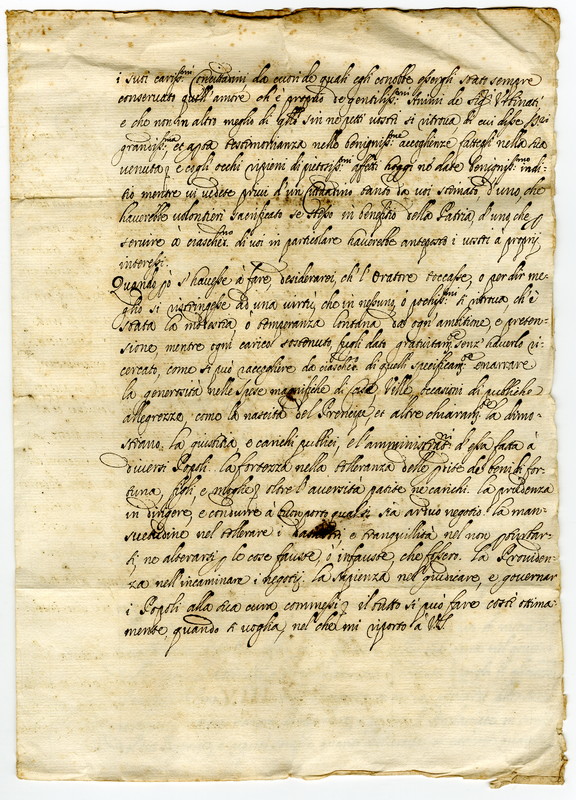 i suoi cariss:mi Concittadini, da cuori de quali egli conobbe essergli stato sempre
conservato quell'amore ch'è proprio de gentiliss:mi animi de Sig:ri Urbinati,
e che non in altro meglio di q:llo sin ne petti vostri si ritrova, di cui disse
grandiss:ma et aperta testimonianza nelle benigniss:me accoglienze fattegli nella sua
venuta, e cogl'occhi ripieni di pietosiss:mi affetti hoggi nè date benigniss:mo indi-
tio mentre vi vedete privi d'un Cittadino tanto da voi stimato, d'uno che
haverebbe volontieri sacrificato se stesso in benefitio della Patria, d'uno che p
servire à ciasched:no di voi in particolare haverebbe anteposto i vostri à proprij
interessi.
Quando pò s'havesse à fare, desiderarei, ch'l'Oratore toccasse, o per dir me-
glio si ristringesse ad una virtù, che in nesuno, o pochiss:mi si ritrova ch'è
stata la modestia, o temperanza lontana da ogn'ambitione, e preten-
sione, mentre ogni carico sostenuto, fugli dato gratuitam:te senz'haverlo ri-
cercato, come si può raccogliere da ciasched:no di quelli specificam:te enarrare
la generosità nelle spese magnifiche di Case, Ville, occasioni di publiche
allegrezze, come la nascita del Prencipe, et altre chiaram:te la dimo-
strano. la giustitia e carichi publici, e l'amministrat:ne d'essa fatta à
diversi Popoli. la fortezza nella tolleranza delle perdite de beni di for-
tuna, figli, e moglie, oltre l'aversità patite ne carichi. la prudenza
in dirigere, e condurre à buon porto qual si sia arduo negotio. la man-
suetudine nel tollerare i e tranquillità nel non perturbar-
si, ne alterarsi p le cose fauste, è infauste, che fossero. La Providen-
za nell'incaminare i negotij. la Sapienza nel giudicare, e governar
i Popoli alla sua cura commessi, il tutto si può fare così ottima-
mente, quando si voglia, nel che mi riporto à VS.